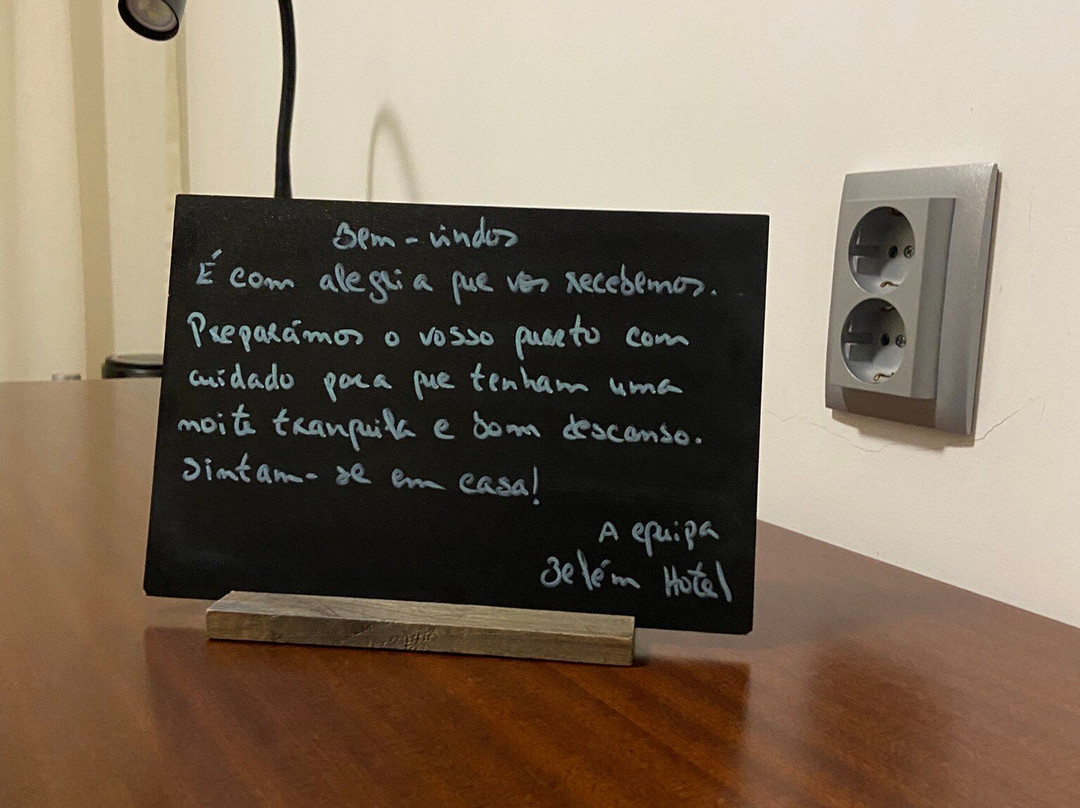 Bem-vindos
É com alegria que vos recebemos.
Preparámos o vosso quarto com
cuidado para que tenham uma
noite tranquila e bom descanso.
Sintam-se em casa!
A equipa
Belém Hotel